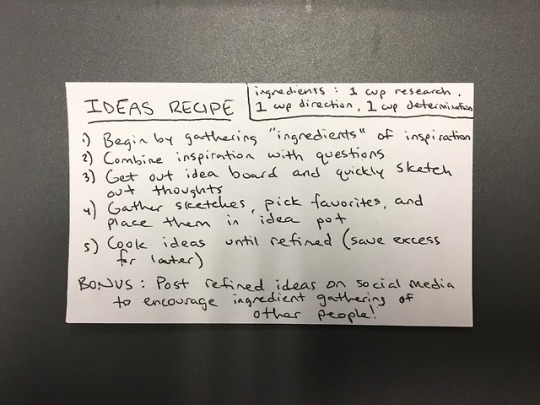 IDEAS RECIPE
ingredients : 1 cup research,
1 cup direction, 1 cup determination
1) Begin by gathering "ingredients" of inspiration
2) Combine inspiration with questions
3) Get out idea board and quickly sketch
out thoughts
4) Gather sketches, pick favorites, and
place them in idea pot
5) Cook ideas until refined (save excess
for later)
BONUS : Post refined ideas on social media
to encourage ingredient gathering of
other people!